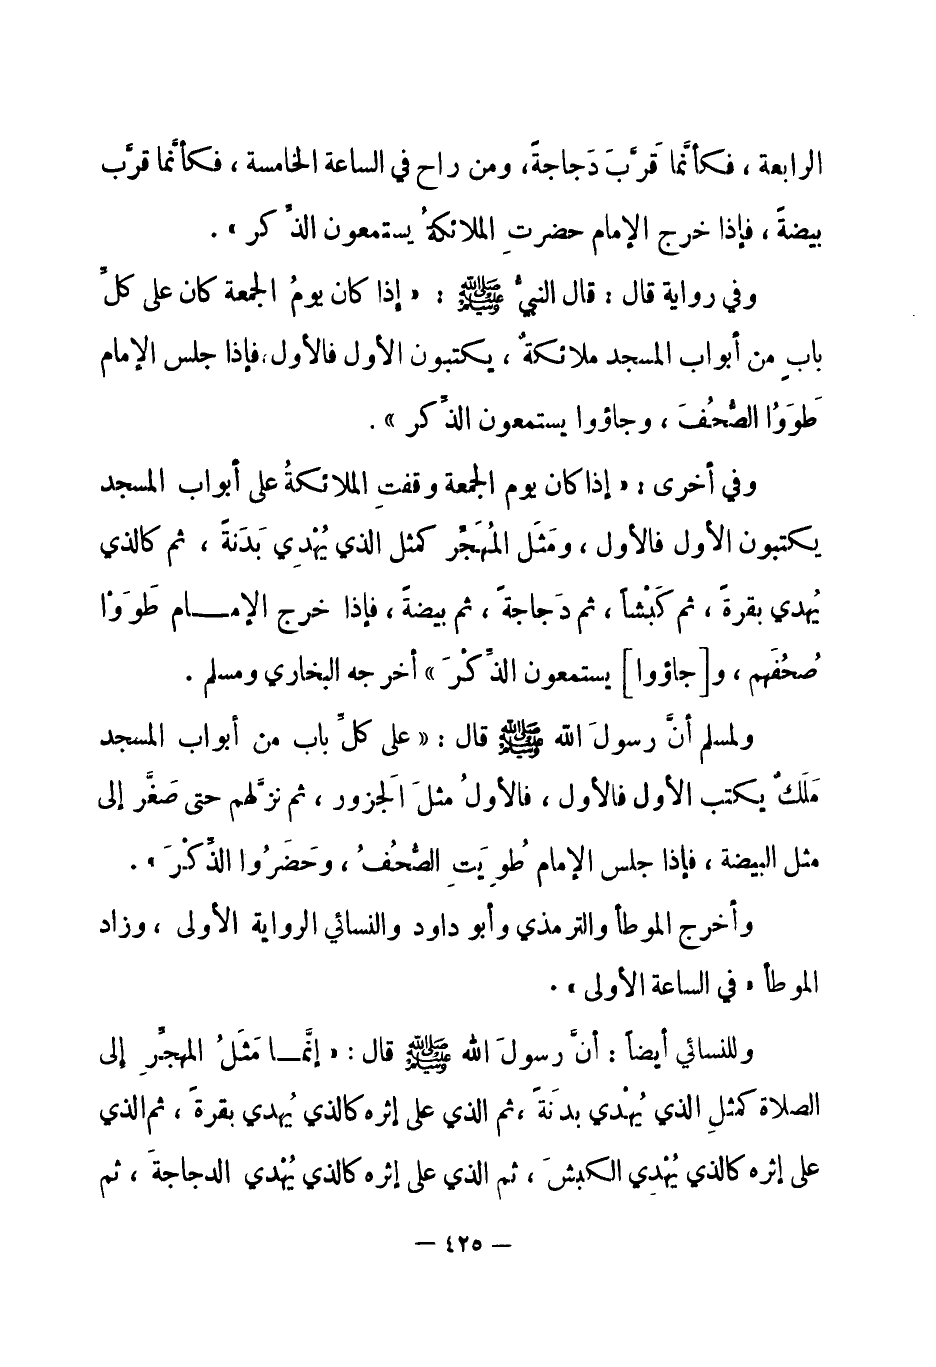 الرابعة ، فكأنَّما قرَّبَ دَجاجةً، ومن راح في الساعة الخامسة ، فكأنَّما قرَّب
بيضةً ، فإذا خرج الإمام حضرتِ الملائكةُ يستمعون الذِّكر » .
وفي رواية قال : قال النبيُّ ﷺ : « إذا كان يومُ الجمعة كان على كلِّ
بابٍ من أبواب المسجد ملائكةٌ ، يكتبون الأول فالأول،فإذا جلس الإمام
طَوَوُا الصُّحُفَ ، وجاؤوا يستمعون الذِّكر » .
وفي أخرى : « إذا كان يوم الجمعة وقفتِ الملائكةُ على أبواب المسجد
يكتبون الأول فالأول ، ومَثَل المُهَجِّر كمثل الذي يُهْدِي بَدَنةً ، ثم كالذي
يُهدي بقرةً ، ثم كَبْشاً ، ثم دَجاجةً ، ثم بيضةً ، فإذا خرج الإمــام طَوَوْا
صُحُفَهم ، و[جاؤوا] يستمعون الذِّكْرَ » أخرجه البخاري ومسلم .
ولمسلم أنَّ رسولَ الله ﷺ قال : « على كلِّ باب من أبواب المسجد
مَلَكٌ يكتب الأول فالأول ، فالأولُ مثلَ الَجزور ، ثم نزَّلهم حتى صَغَّر إلى
مثل البيضة ، فإذا جلس الإمام طُوِيَتِ الصُّحُفُ ، وحَضَرُوا الذِّكْرَ » .
وأخرج الموطأ والترمذي وأبو داود والنسائي الرواية الأولى ، وزاد
الموطأ « في الساعة الأولى » .
وللنسائي أيضاً : أنَّ رسولَ الله ﷺ قال : « إنَّمــا مَثَلُ المهجِّرِ إلى
الصلاة كمثلِ الذي يُهْدي بدنَةً ،ثم الذي على إثره كالذي يُهدي بقرةً ، ثم الذي
على إثره كالذي يُهْدِي الكبشَ ، ثم الذي على إثره كالذي يُهْدي الدجاجةَ ، ثم
— ٤٢٥ —